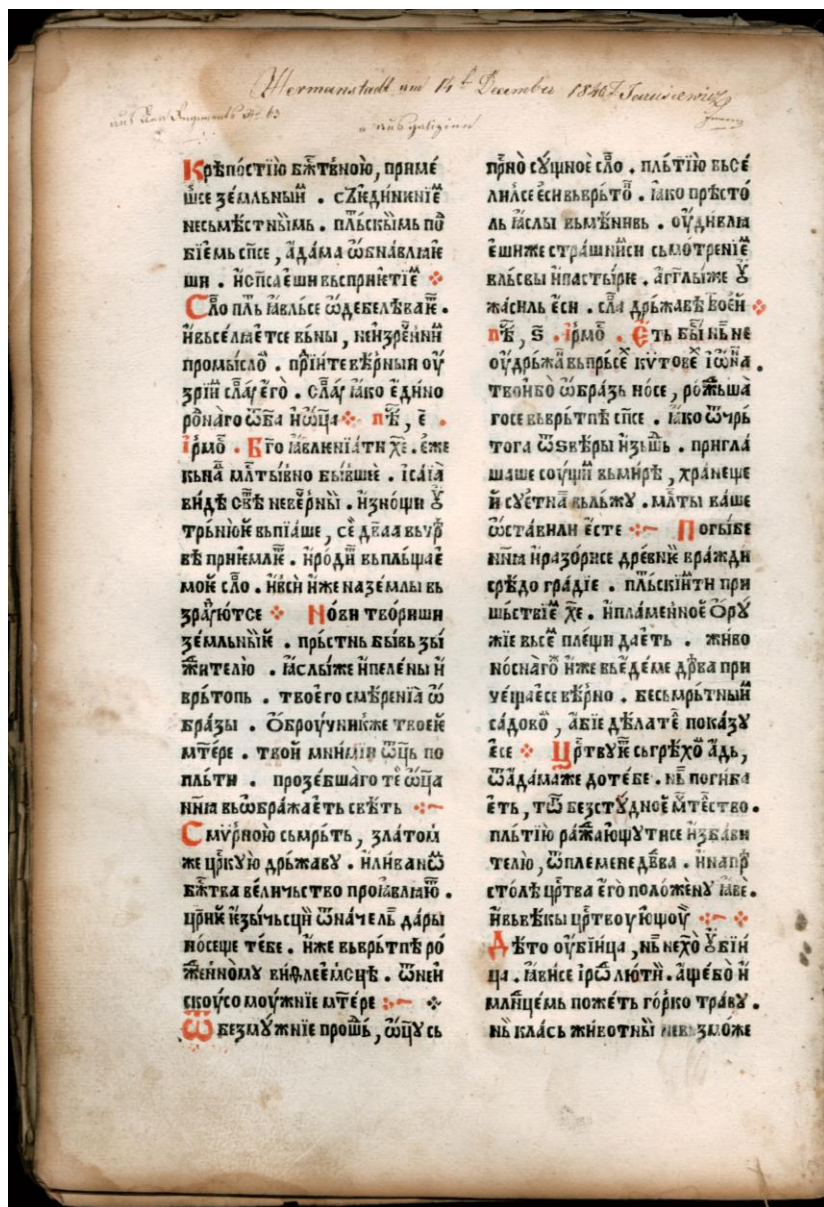 Hermanstadt am 14t December 1840
aus Regiments Nr 63
aus galizien
Крѣпостїю бж҃твною, приме́
ш҃се зе́мльный . съеди́нкнїе
несьмѣстны̏мь . пль́скы̏мь по̑
бїемь сп҃се , а҆да́ма ѡ҆бнавлꙗ́к
ши . и҆сп҃са́еши вьсприктїе ⁘
Сло̑ пль ꙗ҆вльсе ѿдебелѣвак .
и҆вьсе́лꙗ́етсе вьны , неизре́ннїи
промы́сло̑ . прїи́нте вѣ́рныи ѹ
зрїи сла́ѵ е҆го̀ . сла́ѵ ꙗ҆ко е҆ди́но
ро̑наго ѡ҆б҃а и҆ѿц҃а ⁘ пѣ , е҃ .
і҆рмо̑ . Бг҃о ꙗ҆влкнїа́ти хе҃ . е҆же
кьна̑ мл҃ты́вно бы́вшее . І҆са́їа
ви́дѣ свѣ̑ неве́рны̏и . и҆зно́щи ѹ҆
трьнюк вьпїа́ше , се̑ дв҃аа вьѵр̑
вѣ прикмлк . и҆роди̑ вьпль́щае
мок сло̑ . и҆вси̏ и҆же на зе́млы вь
зра́ѹютсе ⁘ Но́ви тво́риши
зе́мльны̏к . прь́стнь бы́вь зы́
жи́телю . ꙗ҆слы́же и҆пеле́ны и҆
врь́топь . твоего смѣре́нїа ѡ҆
бра́зы . Ѻ҆броу́чникже твоек
мт҃ере . твои̏ мни́мїи ѿц҃ь по
пль́ти . прозе́бшаго те̑ ѿц҃а
нн҃ꙗ вьѡбража́еть свѣть ⁘~
Сму́рною сьмрь́ть , зла́том
же цр҃кую дрьжа́вꙋ . и҆лива́нѡ̑
бж҃тва ве́личьство проꙗ҆влꙗю̑ .
цр҃ик і҆езы́чьсци̏ ѿначель̑ да́ры
но́сеще те́бе . и҆же вьврь́тпѣ ро́
же́нномꙋ виѳлее́мсцѣ . ѿнеи̏
скоусо моу́жнїе мт҃е́ре ⁘~ ⁘
Ѿбезмꙋ́жнїе прошь̑ , ѿц҃ꙋ сь
пр҃но сꙋ́щное сло̑ . пль́тїю вьсе́
лилсе е҆си вьврь́то̑ . ꙗ҆ко прѣсто́
ль ꙗ҆слы вьмѣ́нивь . ѹ҆ди́влꙗ
е҆шиже стра́шни̏си сьмо́тренїе̑
вль́свы и҆па́стырк . а҆гг҃лы́же ѹ҆
жа́силь е҆си . сла̑ дрьжа́вѣ твоеи̏ ⁘
пѣ̑ , ѕ҃ . і҆рмо̑ . Е҆ть бы̏и ны̑ не
ѹ҆дрьжа̑ вьпрьсе̑ кѵ́тове̑ і҆ѡ́на .
твои́ бо̀ ѡ҆бра́зь но́се , ро́жьша̀
госе вьврь́тпѣ сп҃се . ꙗ҆ко ѿчрь́
тога ѿѕвѣры и҆зьшь̑ . пригла́
шаше соущи̏ вьми́рѣ , хра́неще
и҆ сꙋетна̑ вьль́жꙋ . мл҃ты ва́ше
ѿста́вили е҆сте ⁘~ Погы́бе
нн҃ꙗ и҆разо́рисе дре́вник вра́жди
срѣдо гра́дїе . пль́скїи́ти при
шь́ствїе̑ хе҃ . и҆пла́менное ѻ҆рꙋ̑
жїе вьсе̑ пле́щи дае́ть . живо
но́снаго̑ и҆же вье҆де́ме дрв̑а при
че́щаесе вѣ́рно . бесьмрь́тныи̏
са́дово̑ , а҆бїе дѣ́лате̑ пока́зꙋ
е҆се ⁘ Цр҃твꙋк сьгрѣхо̑ а҆дь,
ѿа҆да́маже дотебе . нь̑ поги́ба
е҆ть , тѡ̑ безстꙋ́дное мт҃е́ство .
пль́тїю ража́ющꙋтисе и҆зба́ви
телю , ѿпле́мене дв҃ва . и҆напр̑
сто́лѣ цр҃тва е҆го поло́женꙋ ꙗ҆вѐ .
и҆вьвѣкы цр҃твоующоу̑ ⁘~ ⁘
Дѣто ѹ҆бїи́ца , нь̑ нехо̑ ѹ҆бїи́
ца . ꙗ҆ви́се і҆рѡ̑ лю́ти̏ . а҆ще́бо̀ и҆
мл҃цемь пожеть го́рко травꙋ .
нь кла́сь живо́тны̏и невьзмо́же